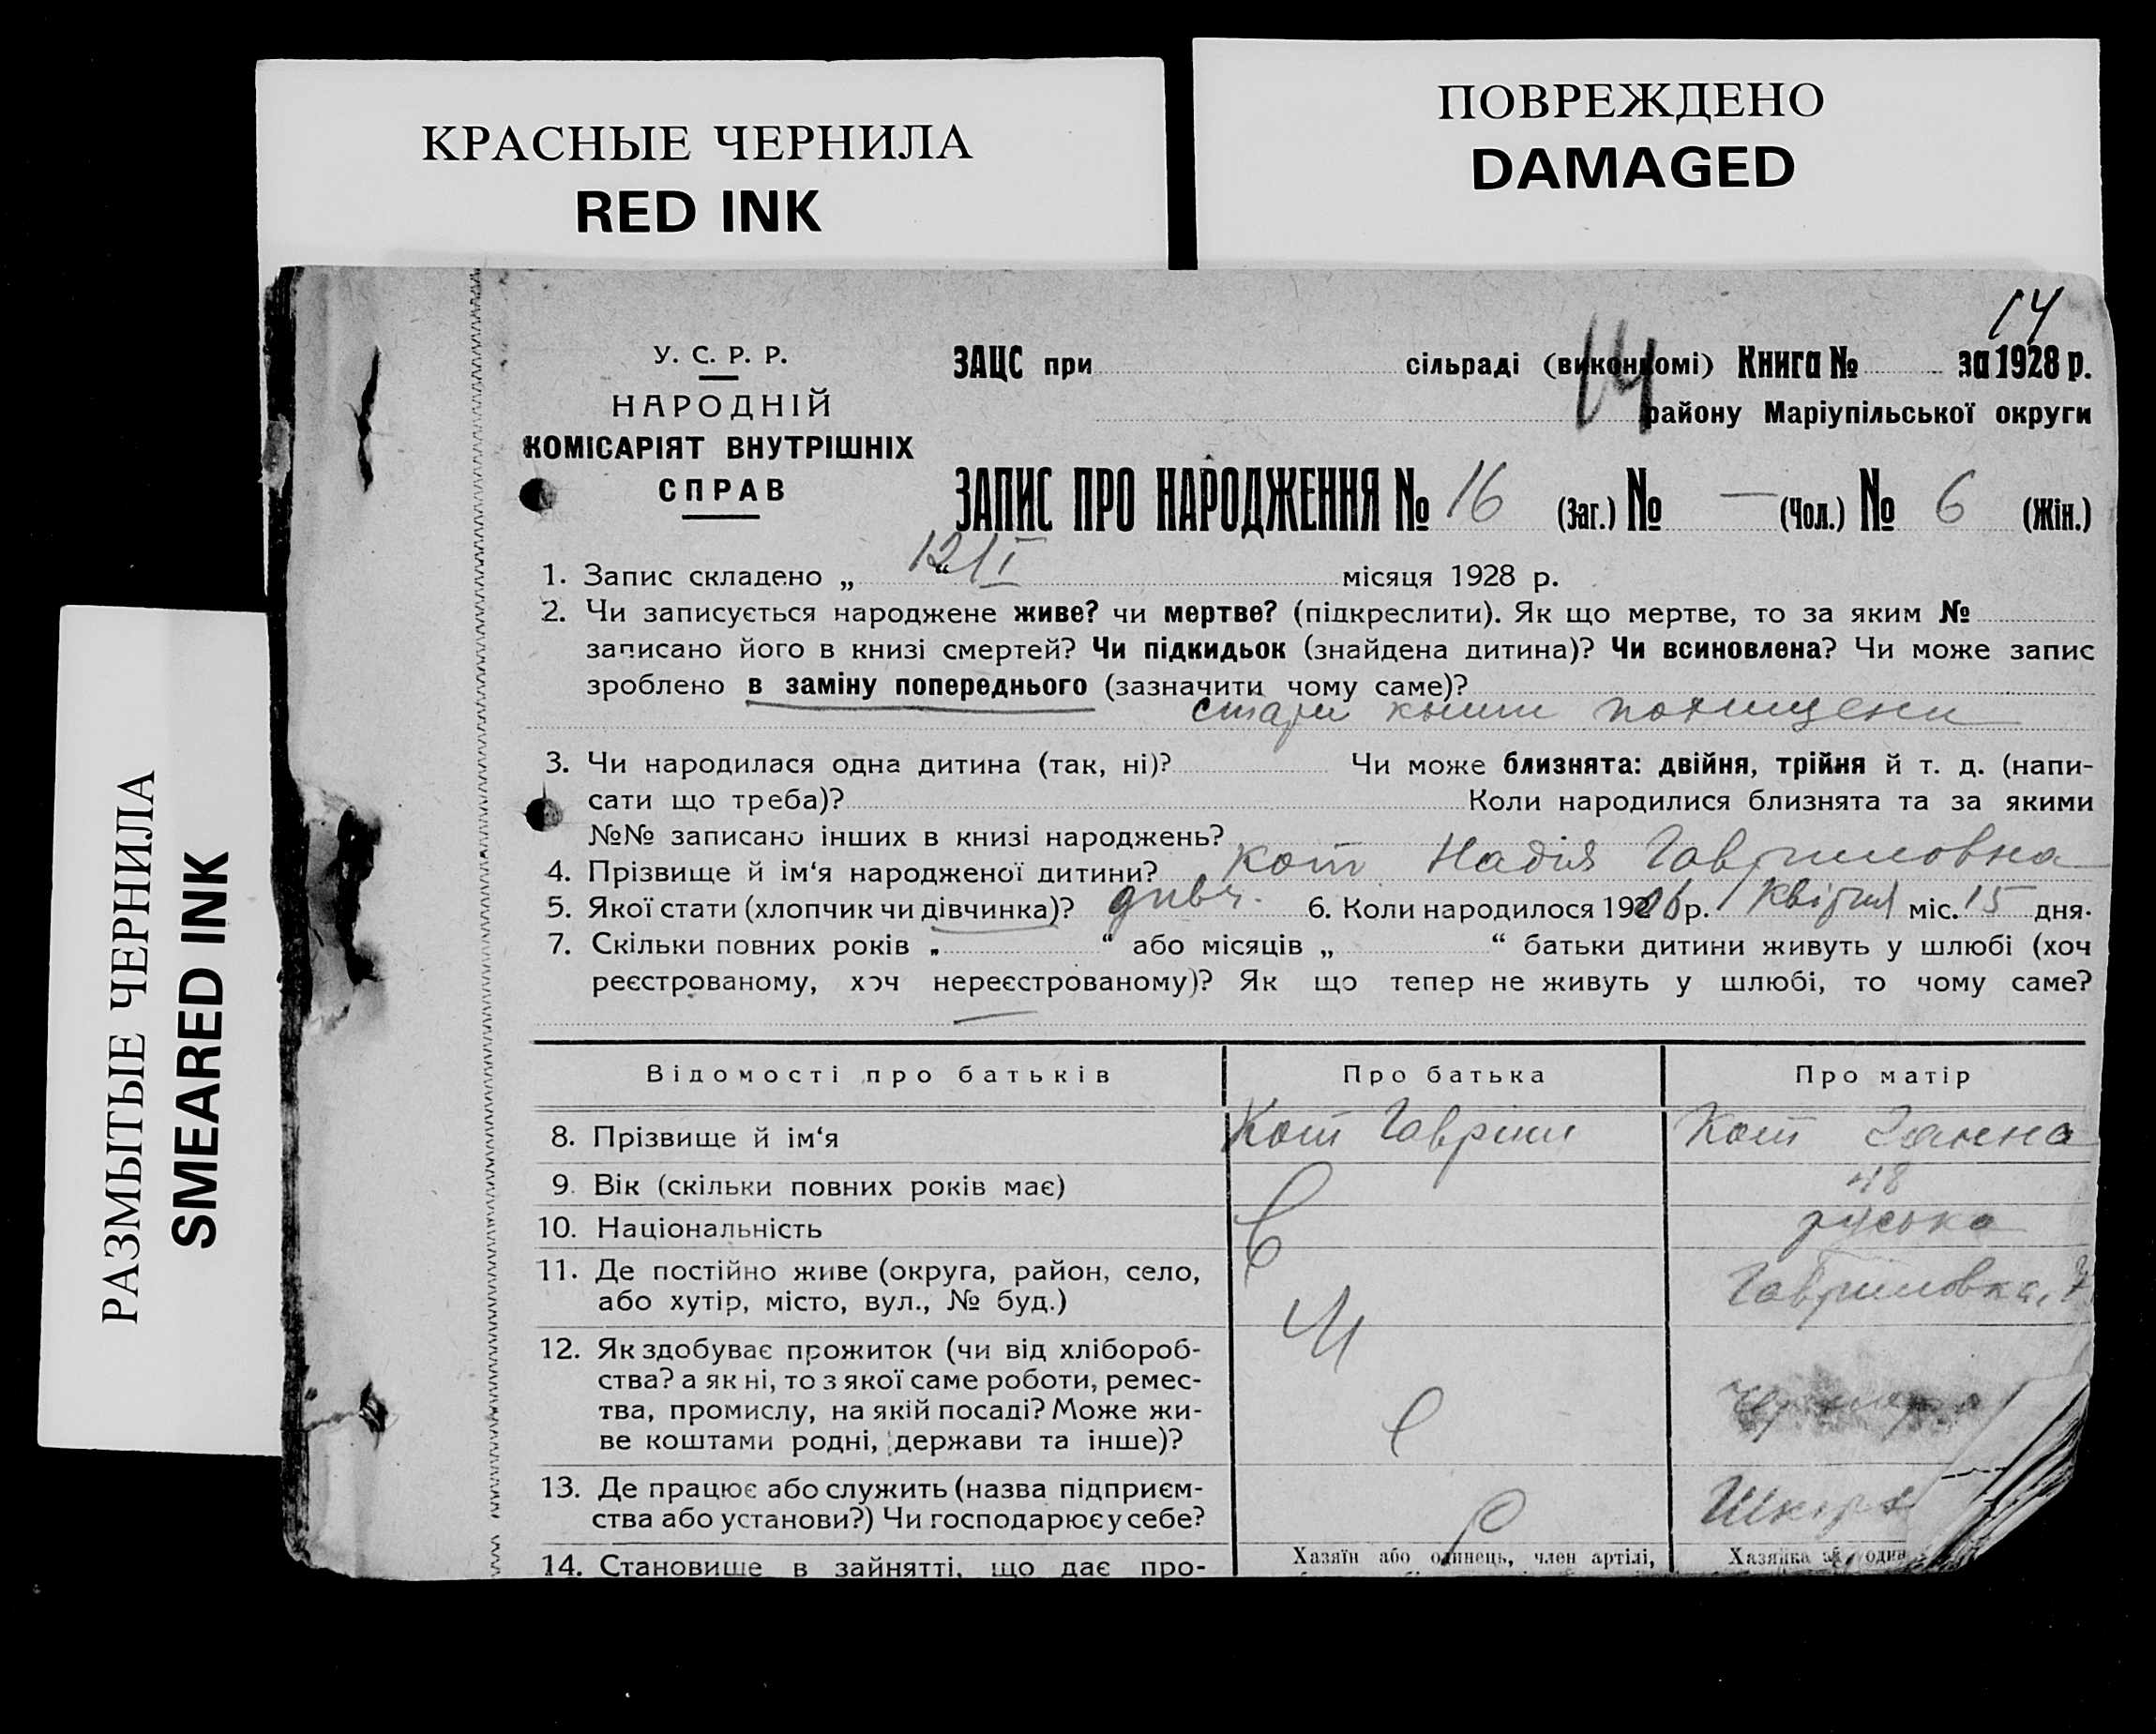 КРАСНЫЕ ЧЕРНИЛА
RED INK
ПОВРЕЖДЕНО
DAMAGED
РАЗМЫТЫЕ ЧЕРНИЛА
SMEARED INK
14
У. С. Р. Р.
НАРОДНІЙ
КОМІСАРІЯТ ВНУТРІШНІХ
СПРАВ
ЗАЦС при сільраді (виконкомі) Книга № за 1928 р.
14
району Маріупільської округи
ЗАПИС ПРО НАРОДЖЕННЯ № 16 (Заг.) № — (Чол.) № 6 (Жін.)
1. Запис складено „ 12/I “ місяця 1928 р.
2. Чи записується народжене живе? чи мертве? (підкреслити). Як що мертве, то за яким №
записано його в книзі смертей? Чи підкидьок (знайдена дитина)? Чи всиновлена? Чи може запис
зроблено в заміну попереднього (зазначити чому саме)?
стари книги похищени
3. Чи народилася одна дитина (так, ні)? Чи може близнята: двійня, трійня й т. д. (напи-
сати що треба)? Коли народилися близнята та за якими
№№ записано інших в книзі народжень?
4. Прізвище й ім‘я народженої дитини? Кот Надія Гавриловна
5. Якої стати (хлопчик чи дівчинка)? дивч. 6. Коли народилося 1906 р. Квітня міс. 15 дня.
7. Скільки повних років „ “ або місяців „ “ батьки дитини живуть у шлюбі (хоч
реєстрованому, хоч нереєстрованому)? Як що тепер не живуть у шлюбі, то чому саме?
Відомості про батьків Про батька Про матір
8. Прізвище й ім‘я Кот Гаврило Кот Ганна
9. Вік (скільки повних років має) 48
10. Національність руська
11. Де постійно живе (округа, район, село,
або хутір, місто, вул., № буд.) Гавриловка,
12. Як здобуває прожиток (чи від хлібороб-
ства? а як ні, то з якої саме роботи, ремес-
тва, промислу, на якій посаді? Може жи-
ве коштами родні, держави та інше)?
13. Де працює або служить (назва підприєм-
ства або установи?) Чи господарює у себе?
14. Становище в зайнятті, що дає про-
Хазяїн або одинець, член артілі,
Хазяйка